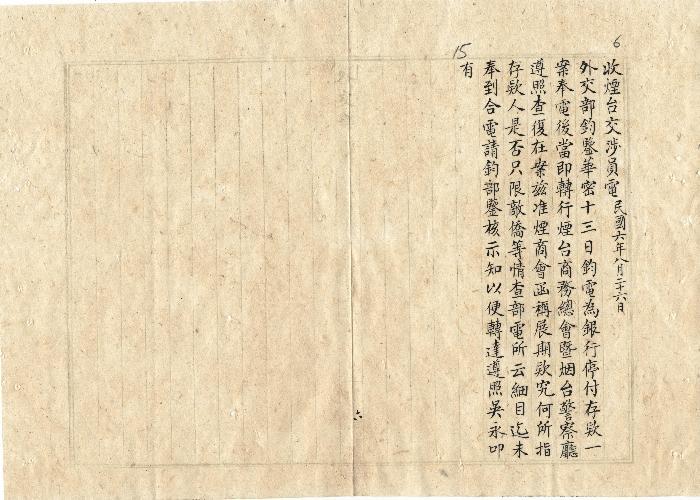 6
收煙台交涉員電民國六年八月二十六日
外交部鈞鑒華密十三日鈞電為銀行停付存款一
案奉電後當即轉行煙台商務總會暨烟台警察廳
遵照查復在案茲准煙商會函稱展期款究何所指
存款人是否只限敵僑等情查部電所云細目迄未
奉到合電請鈞部鑒核示知以便轉達遵照吳永叩
有
15
六